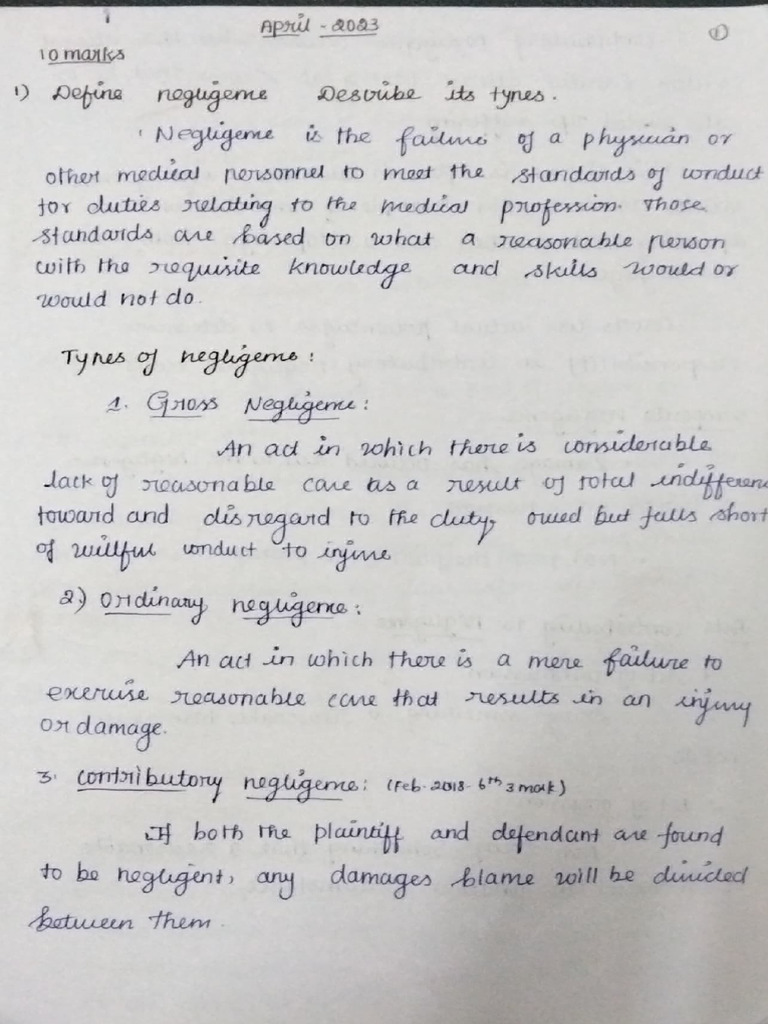 April - 2023
①
10 marks
1) Define negligence Describe its types.
Negligence is the failure of a physician or
other medical personnel to meet the standards of conduct
for duties relating to the medical profession. Those
standards are based on what a reasonable person
with the requisite knowledge and skills would or
would not do.
Types of negligence :
1. Gross Negligence :
An act in which there is considerable
lack of reasonable care as a result of total indifferen
toward and disregard to the duty, owed but falls short
of willful conduct to injure
2) Ordinary negligence :
An act in which there is a mere failure to
exercise reasonable care that results in an injury
or damage.
3. contributory negligence : (Feb-2018-6th 3 mark)
If both the plaintiff and defendant are found
to be negligent, any damages blame will be divided
between them.